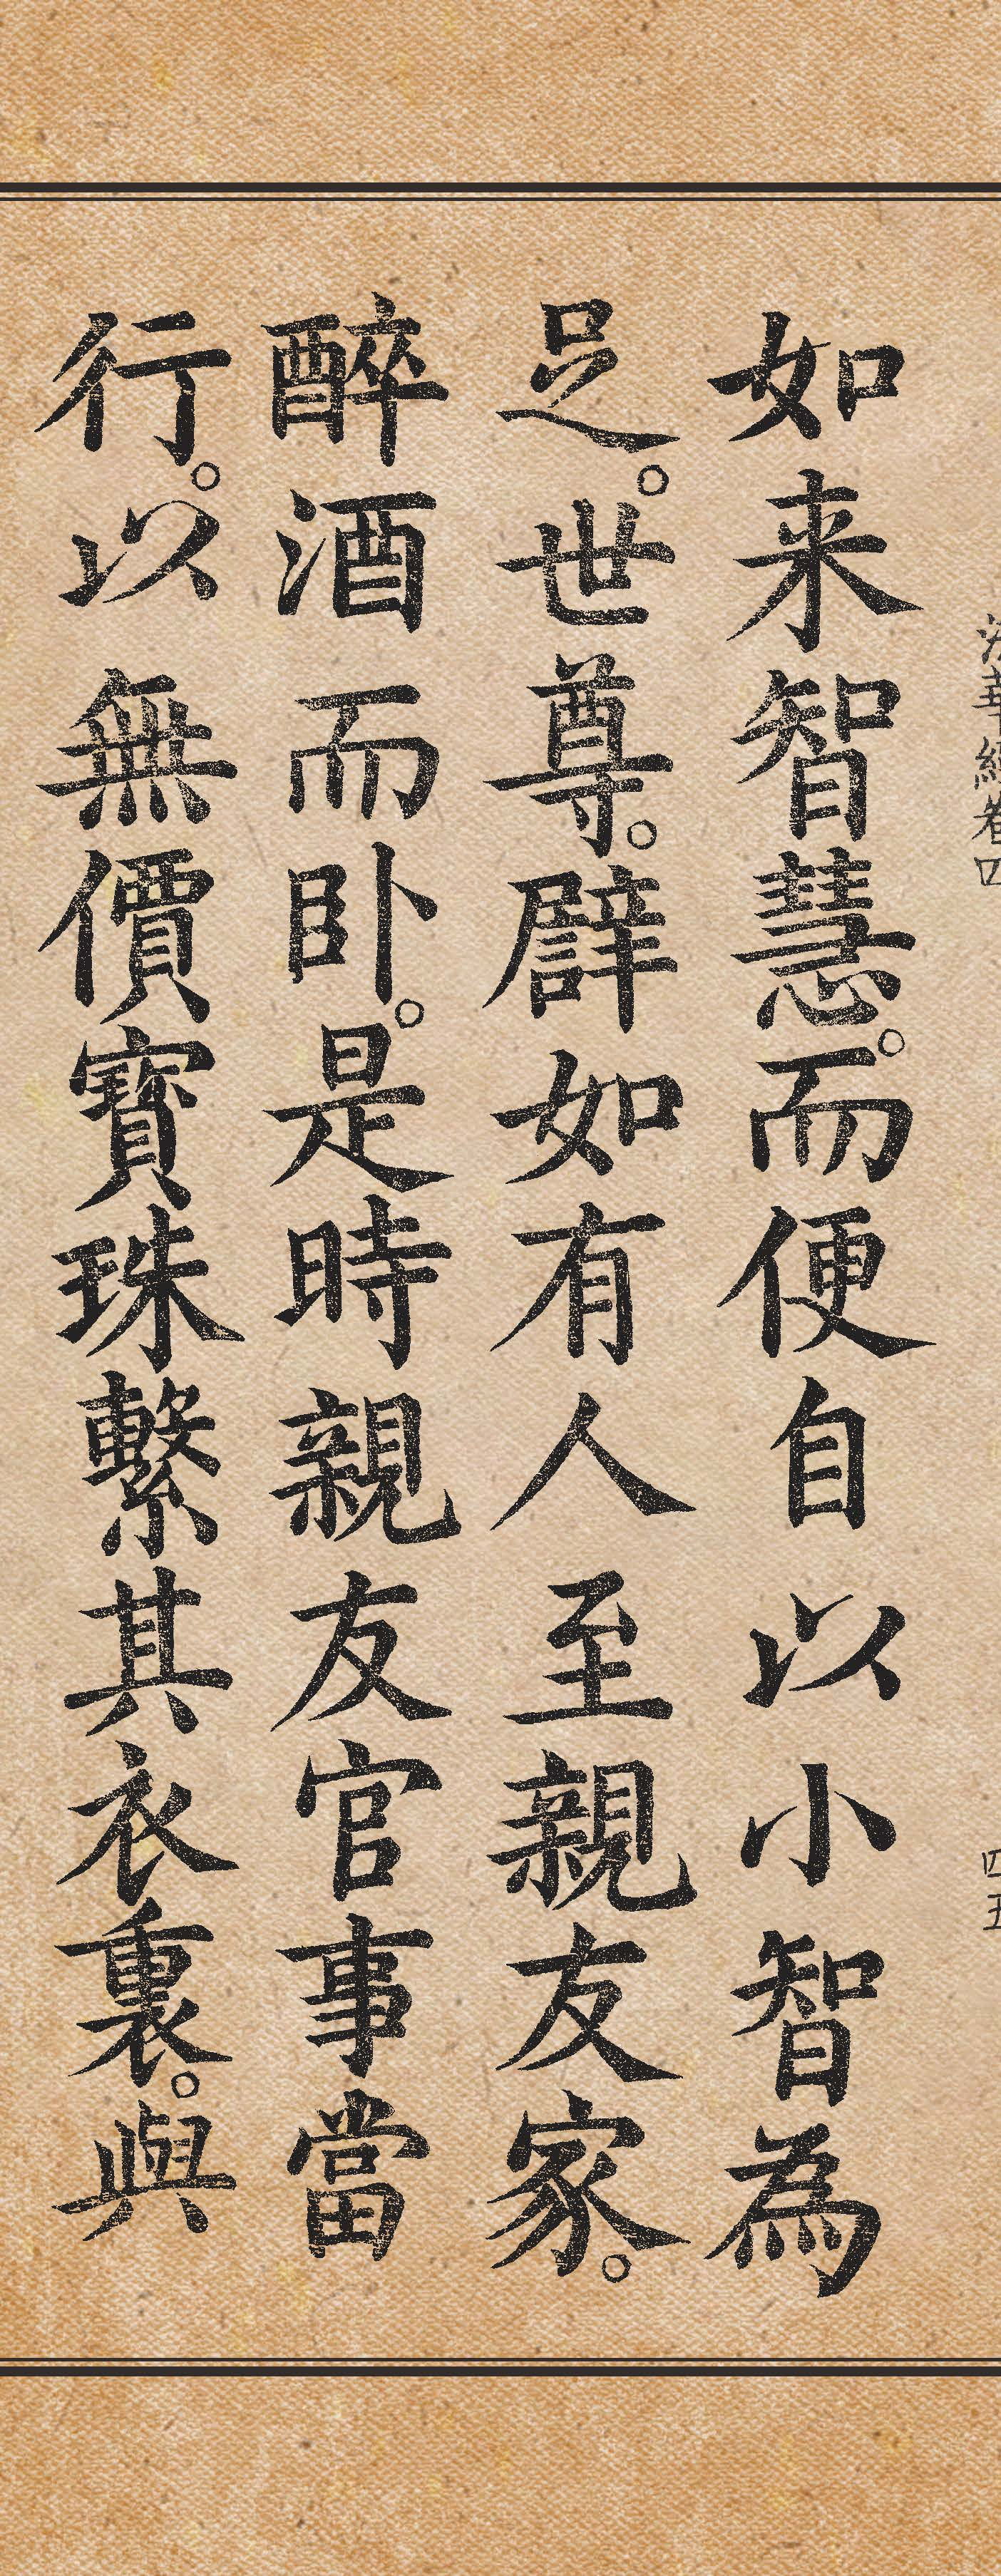 法華經卷四
四五
如来智慧。而便自以小智為
足。世尊。譬如有人至親友家。
醉酒而卧。是時親友官事當
行。以無價寶珠繫其衣裏。與